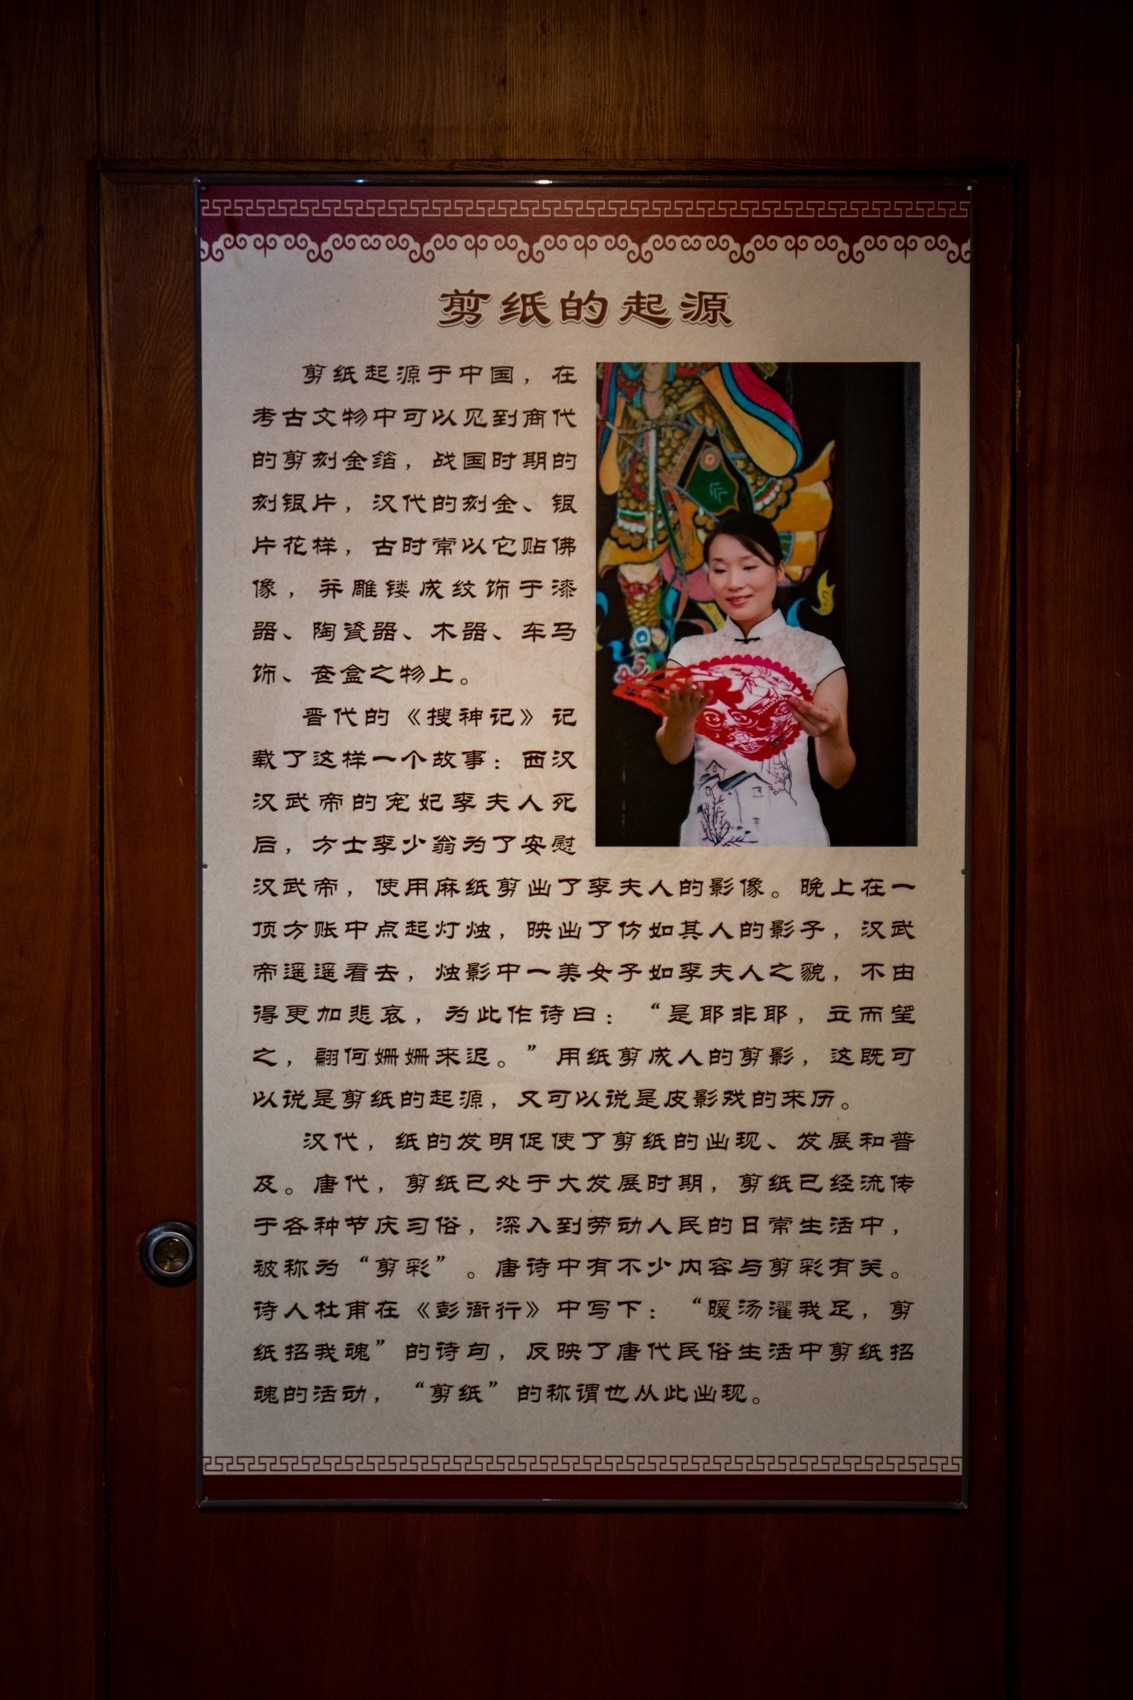 剪纸的起源
剪纸起源于中国，在
考古文物中可以见到商代
的剪刻金箔，战国时期的
刻银片，汉代的刻金、银
片花样，古时常以它贴佛
像，并雕镂成纹饰于漆
器、陶瓷器、木器、车马
饰、奁盒之物上。
晋代的《搜神记》记
载了这样一个故事：西汉
汉武帝的宠妃李夫人死
后，方士李少翁为了安慰
汉武帝，使用麻纸剪出了李夫人的影像。晚上在一
顶方账中点起灯烛，映出了仿如其人的影子，汉武
帝遥遥看去，烛影中一美女子如李夫人之貌，不由
得更加悲哀，为此作诗曰：“是耶非耶，立而望
之，翩何姗姗来迟。”用纸剪成人的剪影，这既可
以说是剪纸的起源，又可以说是皮影戏的来历。
汉代，纸的发明促使了剪纸的出现、发展和普
及。唐代，剪纸已处于大发展时期，剪纸已经流传
于各种节庆习俗，深入到劳动人民的日常生活中，
被称为“剪彩”。唐诗中有不少内容与剪彩有关。
诗人杜甫在《彭衙行》中写下：“暖汤濯我足，剪
纸招我魂”的诗句，反映了唐代民俗生活中剪纸招
魂的活动，“剪纸”的称谓也从此出现。